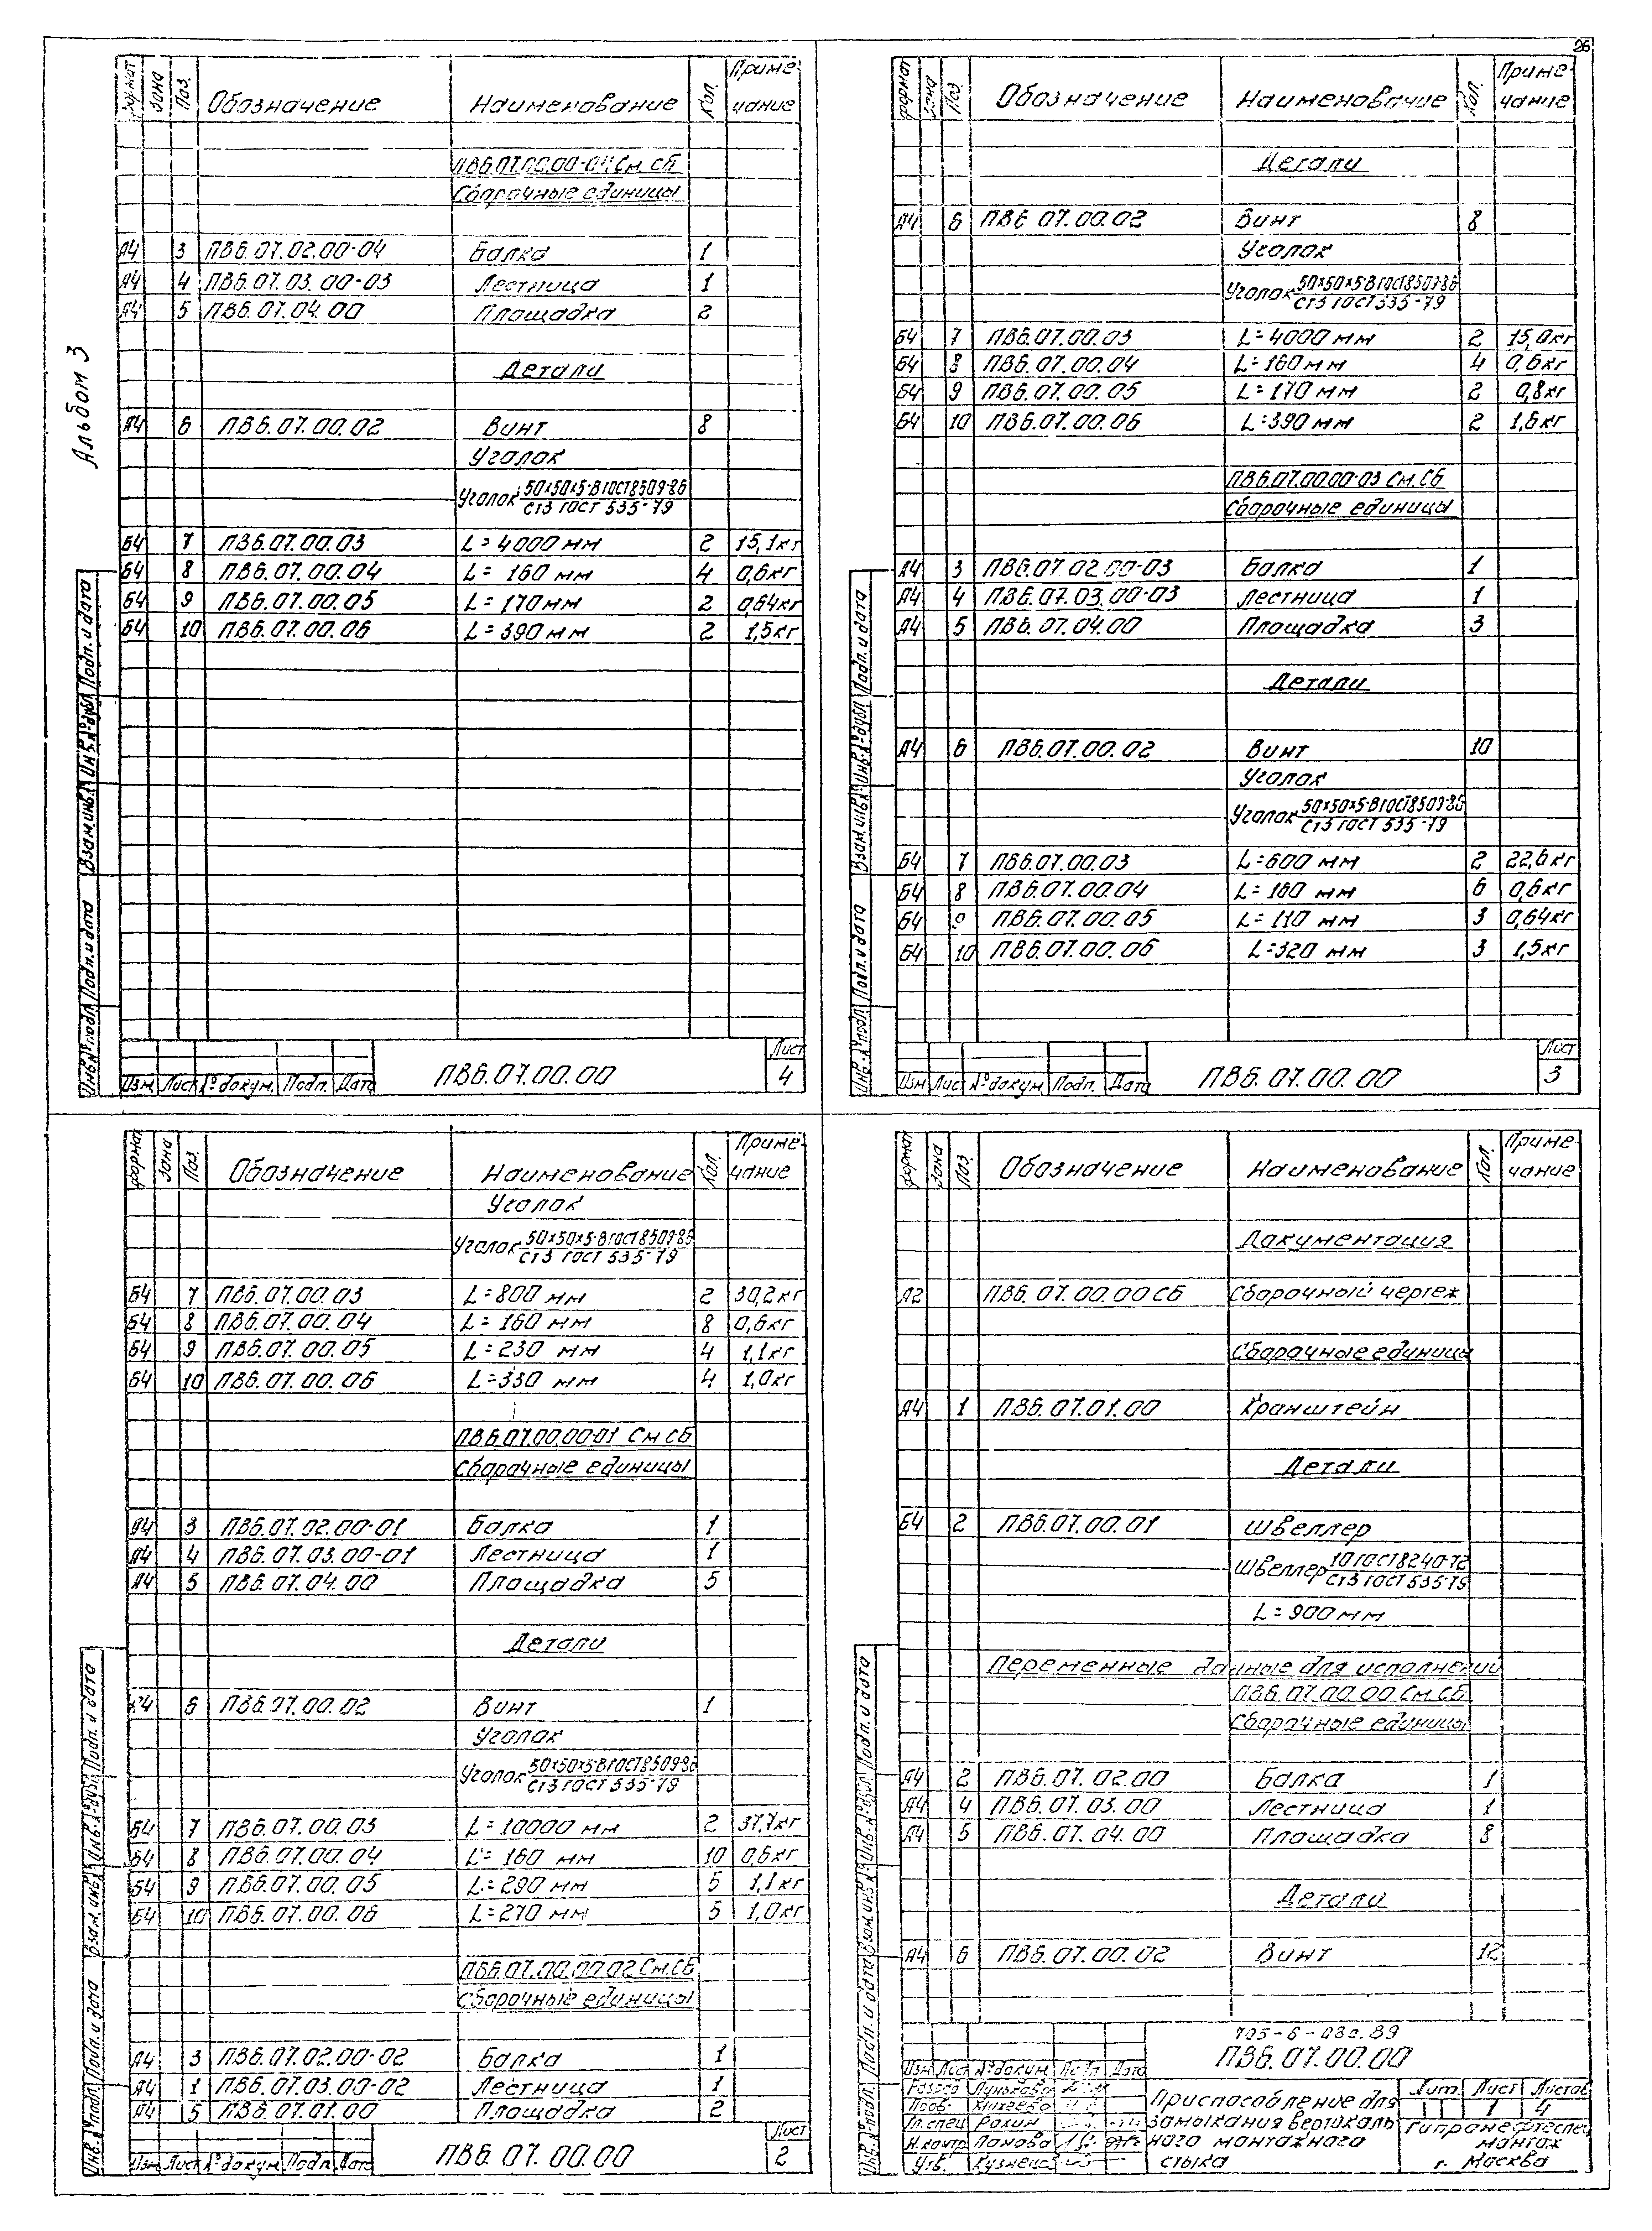 26
Альбом 3
Формат Зона Поз. Обозначение Наименование Кол. Приме-
чание
ПВ6.07.00.00-04 См. СБ
Сборочные единицы
А4 3 ПВ6.07.02.00-04 Балка 1
А4 4 ПВ6.07.03.00-03 Лестница 1
А4 5 ПВ6.07.04.00 Площадка 2
Детали
А4 6 ПВ6.07.00.02 Винт 8
Уголок
Уголок 50×50×5-В ГОСТ 8509-86
Ст3 ГОСТ 535-79
Б4 7 ПВ6.07.00.03 L=4000 мм 2 15,1кг
Б4 8 ПВ6.07.00.04 L= 160 мм 4 0,6кг
Б4 9 ПВ6.07.00.05 L= 170мм 2 0,64кг
Б4 10 ПВ6.07.00.06 L=390 мм 2 1,5кг
Инв.№подл. Подп. и дата Взам.инв.№ Инв.№дубл. Подп. и дата
Изм. Лист №докум. Подп. Дата
ПВ6.07.00.00
Лист
4
Формат Зона Поз. Обозначение Наименование Кол. Приме-
чание
Детали
А4 6 ПВ6 07.00.02 Винт 8
Уголок
Уголок 50×50×5-В ГОСТ 8509-86
Ст3 ГОСТ 535-79
Б4 7 ПВ6.07.00.03 L=4000 мм 2 15,0кг
Б4 8 ПВ6.07.00.04 L=160 мм 4 0,6кг
Б4 9 ПВ6.07.00.05 L=170 мм 2 0,8кг
Б4 10 ПВ6.07.00.06 L=390 мм 2 1,6кг
ПВ6.07.00.00-03 См.СБ
Сборочные единицы
А4 3 ПВ6.07.02.00-03 Балка 1
А4 4 ПВ6.07.03.00-03 Лестница 1
А4 5 ПВ6.07.04.00 Площадка 3
Детали
А4 6 ПВ6.07.00.02 Винт 10
Уголок
Уголок 50×50×5-В ГОСТ 8509-86
Ст3 ГОСТ 535-79
Б4 7 ПВ6.07.00.03 L=600 мм 2 22,6кг
Б4 8 ПВ6.07.00.04 L= 160 мм 6 0,6кг
Б4 9 ПВ6.07.00.05 L= 110 мм 3 0,64кг
Б4 10 ПВ6.07.00.06 L=320 мм 3 1,5кг
Инв.№подл. Подп. и дата Взам.инв.№ Инв.№дубл. Подп. и дата
Изм Лист №докум. Подп. Дата
ПВ6.07.00.00
Лист
3
Формат Зона Поз. Обозначение Наименование Кол. Приме-
чание
Уголок
Уголок 50×50×5-В ГОСТ 8509-86
Ст3 ГОСТ 535-79
Б4 7 ПВ6.07.00.03 L=800 мм 2 30,2кг
Б4 8 ПВ6.07.00.04 L= 160 мм 8 0,6кг
Б4 9 ПВ6.07.00.05 L=230 мм 4 1,1кг
Б4 10 ПВ6.07.00.06 L=330 мм 4 1,0кг
ПВ6.07.00.00-01 См СБ
Сборочные единицы
А4 3 ПВ6.07.02.00-01 Балка 1
А4 4 ПВ6.07.03.00-01 Лестница 1
А4 5 ПВ6.07.04.00 Площадка 5
Детали
А4 6 ПВ6.07.00.02 Винт 1
Уголок
Уголок 50×50×5-В ГОСТ 8509-86
Ст3 ГОСТ 535-79
Б4 7 ПВ6.07.00.03 L=10000 мм 2 37,7кг
Б4 8 ПВ6.07.00.04 L= 160 мм 10 0,6кг
Б4 9 ПВ6.07.00.05 L=290 мм 5 1,1кг
Б4 10 ПВ6.07.00.06 L=270 мм 5 1,0кг
ПВ6.07.00.00.02 См.СБ
Сборочные единицы
А4 3 ПВ6.07.02.00-02 Балка 1
А4 1 ПВ6.07.03.00-02 Лестница 1
А4 5 ПВ6.07.01.00 Площадка 2
Инв.№подл. Подп. и дата Взам.инв.№ Инв.№дубл. Подп. и дата
Изм Лист №докум Подп. Дата
ПВ6.07.00.00
Лист
2
Формат Зона Поз. Обозначение Наименование Кол. Приме-
чание
Документация
А2 ПВ6.07.00.00СБ Сборочный чертеж
Сборочные единицы
А4 1 ПВ6.07.01.00 Кронштейн
Детали
Б4 2 ПВ6.07.00.01 Швеллер
Швеллер 10 ГОСТ 8240-72
Ст3 ГОСТ 535-79
L=900 мм
Переменные данные для исполнений
ПВ6.07.00.00 См.СБ
Сборочные единицы
А4 2 ПВ6.07.02.00 Балка 1
А4 4 ПВ6.07.03.00 Лестница 1
А4 5 ПВ6.07.04.00 Площадка 8
Детали
А4 6 ПВ6.07.00.02 Винт 12
Инв.№подл. Подп. и дата Взам.инв.№ Инв.№дубл. Подп. и дата
ПВ6.07.00.00
Изм Лист №докум. Подп Дата
Разраб Лунькова
Пров. Михеева
Гл.спец Рохин
Н.контр Панова
Утв. Кузнецов
Приспособление для
замыкания вертикаль
ного монтажного
стыка
Лит. Лист Листов
1 4
Гипронефтеспец
монтаж
г. Москва